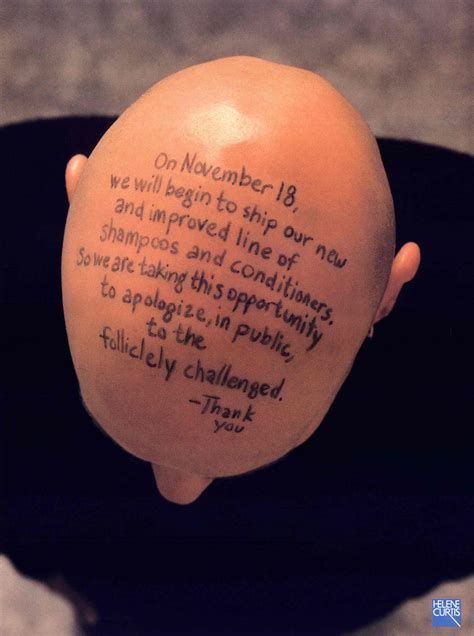 On November 18,
we will begin to ship our new
and improved line of
shampoos and conditioners.
So we are taking this opportunity
to apologize, in public,
to the
folliclely challenged.
-Thank
you
HELENE
CURTIS